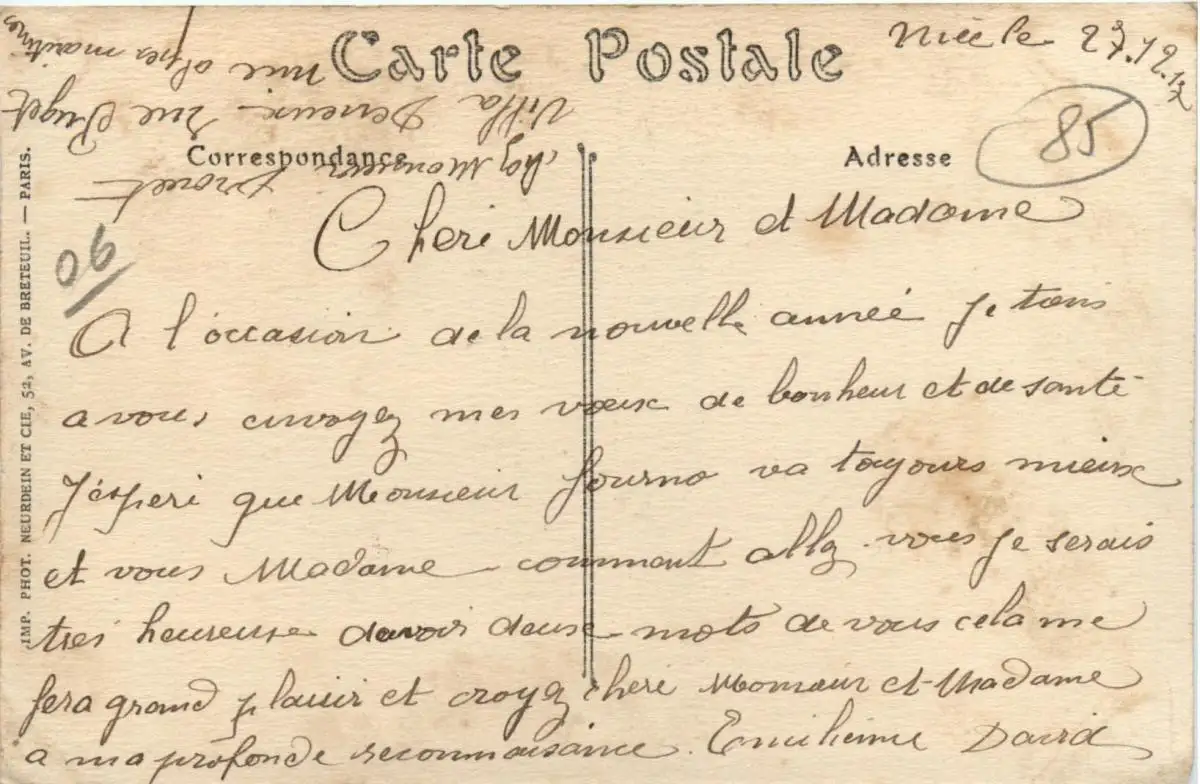 Carte Postale
Nice le 27.12.17
85
Correspondance
Adresse
chez Monsieur Drouet
Villa Deneux rue Puget
nice alpes maritimes
06
IMP. PHOT. NEURDEIN ET CIE, 52, AV. DE BRETEUIL. — PARIS.
Cheri Monsieur et Madame
A l'occasion de la nouvelle année je tens
a vous envoyez mes voeux de bonheur et de santé
J'esperé que Monsieur fourno va toyours mieux
et vous Madame comment allez vous je serais
tres heureuse davoir deux mots de vous cela me
fera grand plaisir et croyez cheri Monsieur et Madame
a ma profonde reconnaisance. Emilienne David